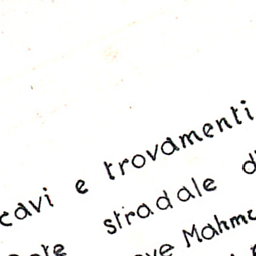 cavi e trovamenti
stradale d
ove Mahmo